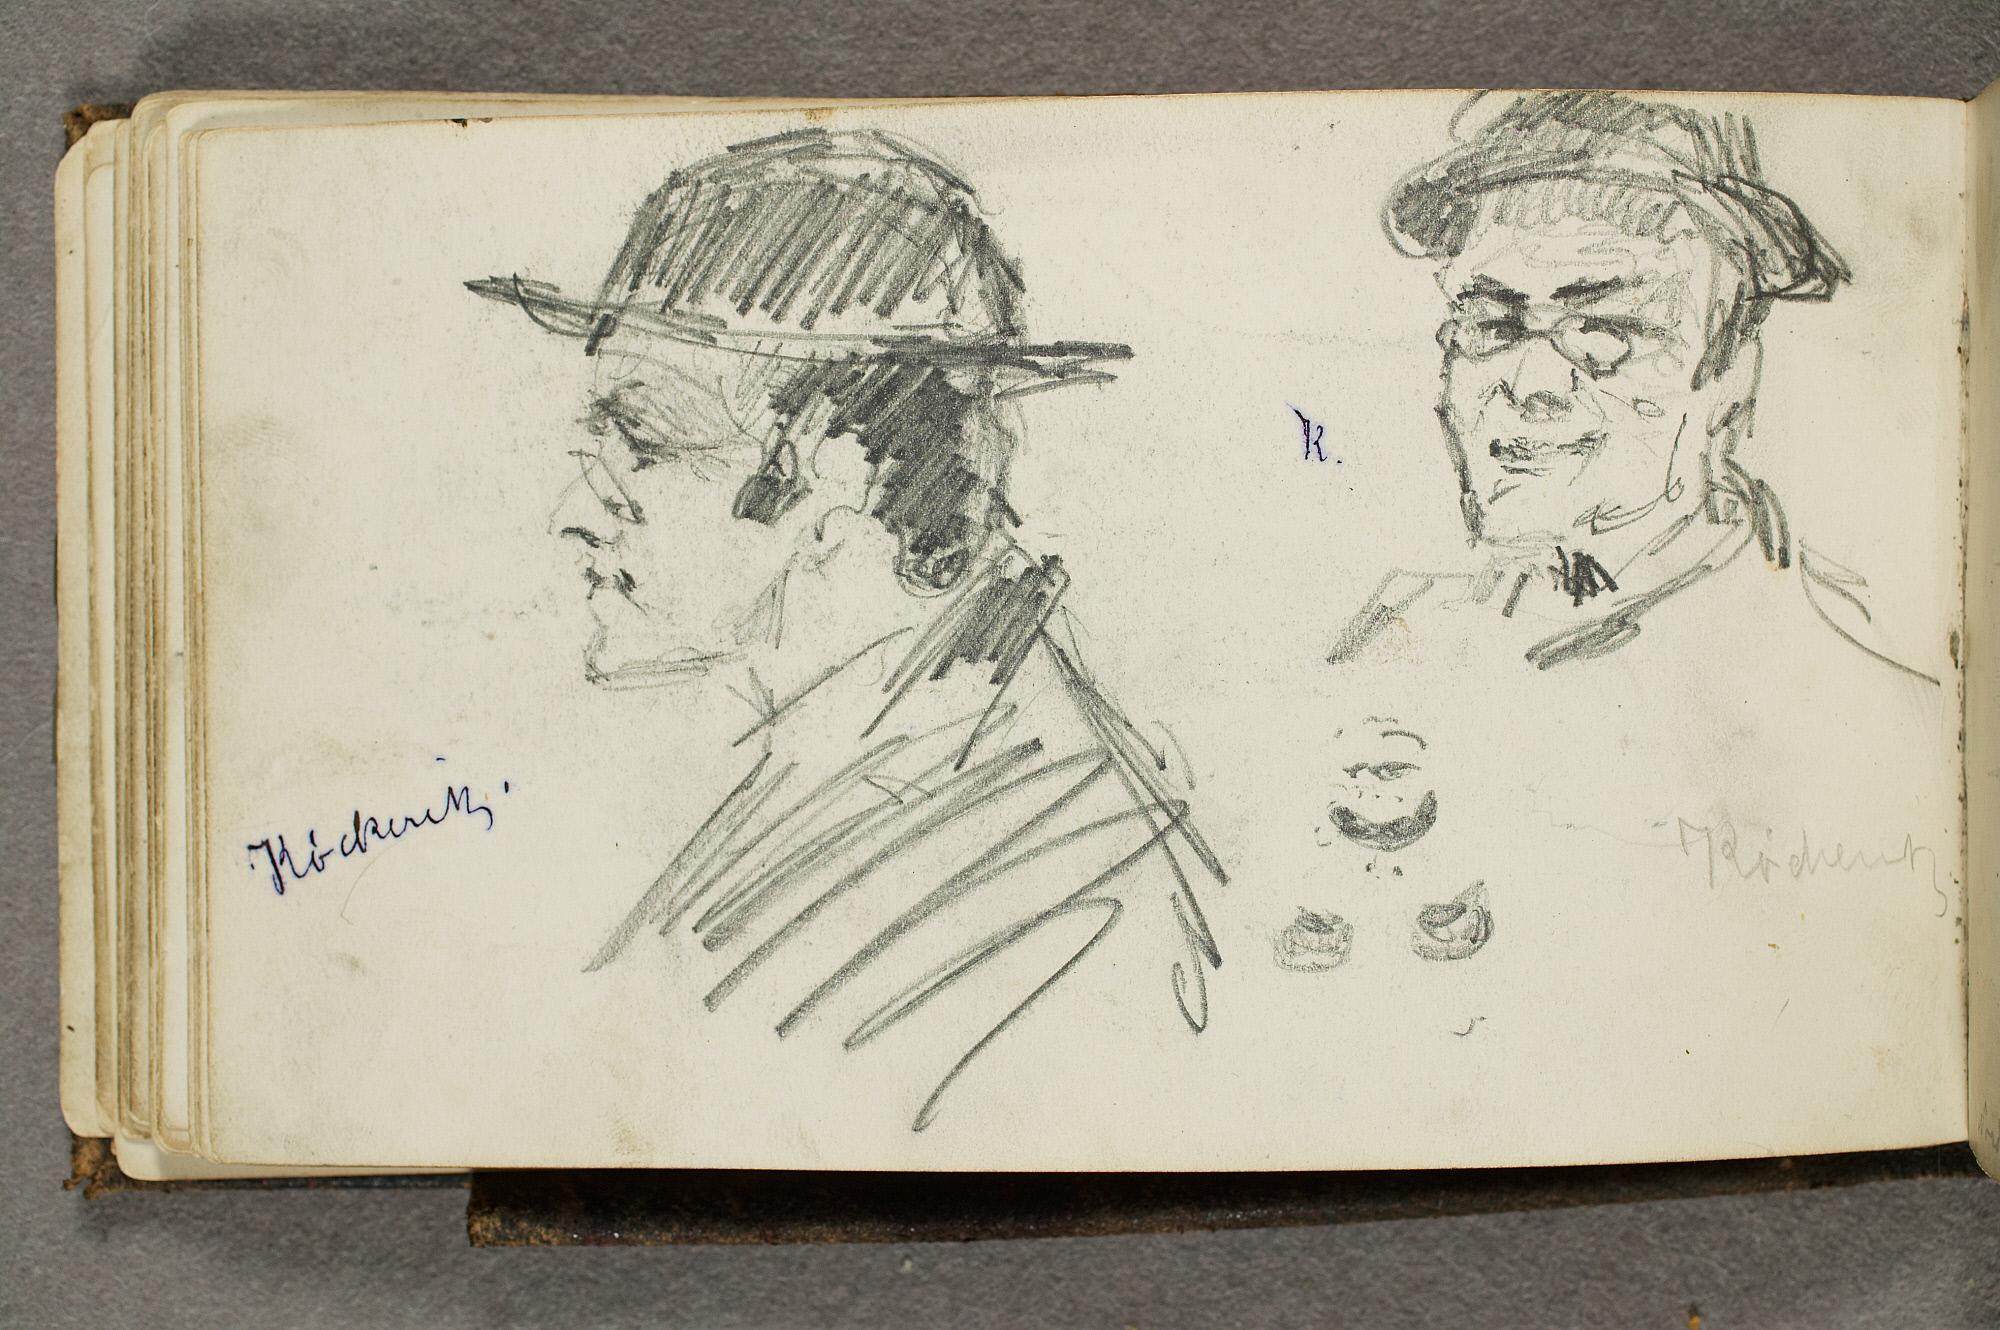 K.
Köckeritz.
Köckeritz